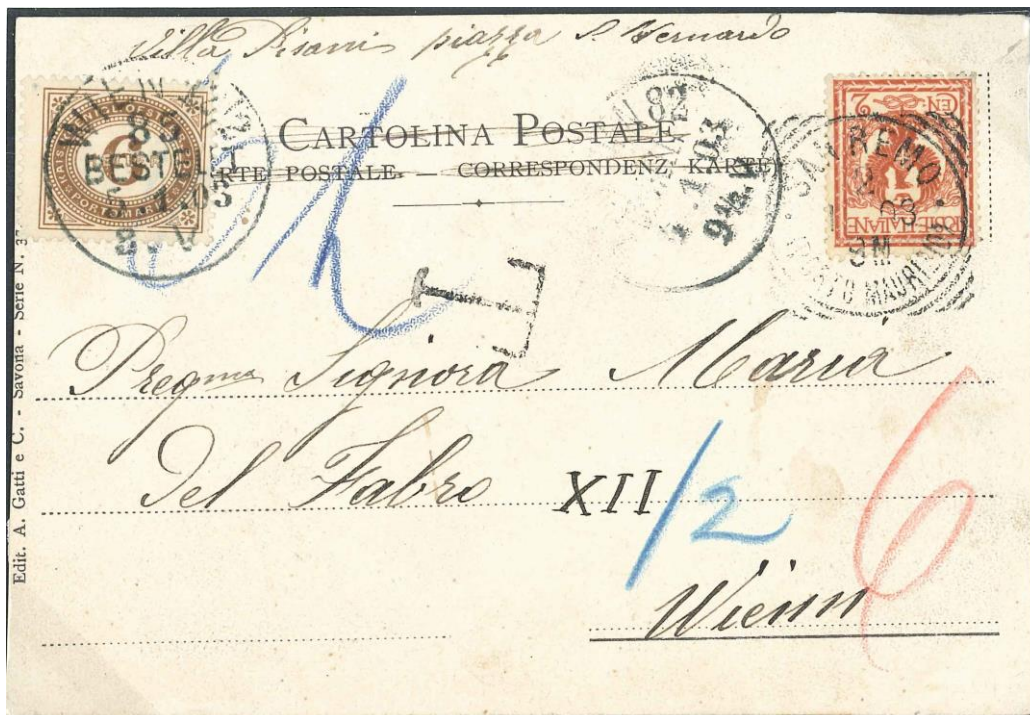 Villa Pisani piazza S. Bernardo
CARTOLINA POSTALE
CARTE POSTALE. — CORRESPONDENZ KARTE
82
BESTELLT
5.1.03
8.V
82
1 03
9½ V
SAN REMO
2
03
8M
PORTO MAURIZIO
POSTE ITALIANE
T
1
Pregma Signora Maria
Del Fabro
XII/2
6
Wienn
Edit. A. Gatti e C. - Savona - Serie N. 37